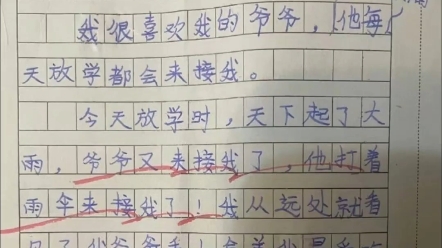 我很喜欢我的爷爷，他每
天放学都会来接我。
今天放学时，天下起了大
雨，爷爷又来接我了，他打着
雨伞来接我了！我从远处就看